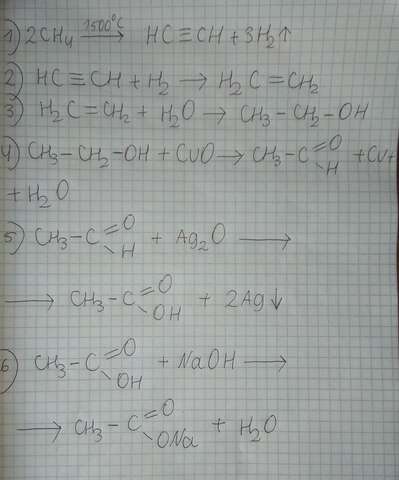 1) 2CH₄ —1500°C→ HC≡CH + 3H₂↑
2) HC≡CH + H₂ → H₂C=CH₂
3) H₂C=CH₂ + H₂O → CH₃–CH₂–OH
4) CH₃–CH₂–OH + CuO → CH₃–C(=O)–H + Cu +
+ H₂O
5) CH₃–C(=O)–H + Ag₂O →
→ CH₃–C(=O)–OH + 2Ag↓
6) CH₃–C(=O)–OH + NaOH →
→ CH₃–C(=O)–ONa + H₂O